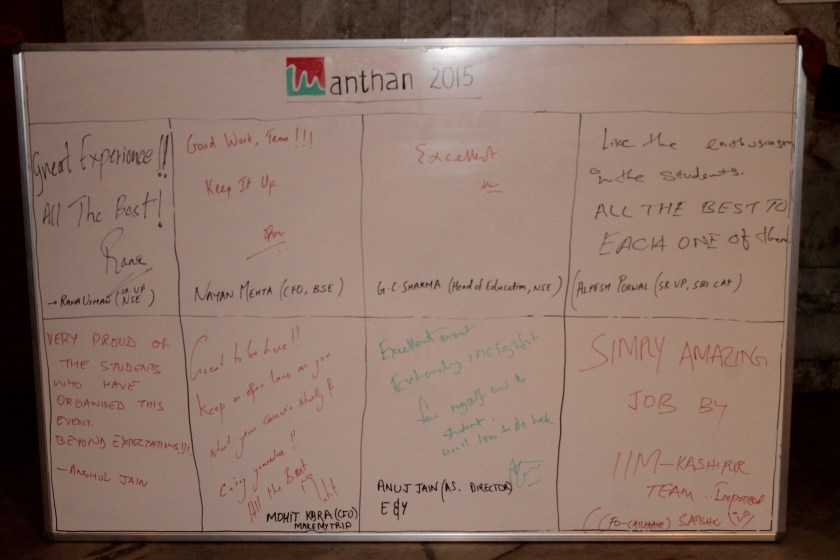 manthan 2015
Great Experience!!
All The Best!
Rana
→ RANA USMAN (SR. VP
NSE)
Good Work, Team!!!
Keep It Up
NAYAN MEHTA (CFO, BSE)
Excellent
G.C. SHARMA (Head of Education, NSE)
Like the enthusiasm
in the students.
ALL THE BEST TO
EACH ONE of them
ALPESH PORWAL (SR VP, SBI CAP)
VERY PROUD OF
THE STUDENTS
WHO HAVE
ORGANISED THIS
EVENT.
BEYOND EXPECTATIONS!!!
- ANSHUL JAIN
Great to be here!!
Keep an open
what your
All the Best
MOHIT KABRA (CFO)
MAKEMYTRIP
Excellent event
Extremely insightful
for myself and
student.
Would love to be back
ANUJ JAIN (AS. DIRECTOR)
E&Y
SIMPLY AMAZING
JOB BY
IIM-KASHIPUR
TEAM.